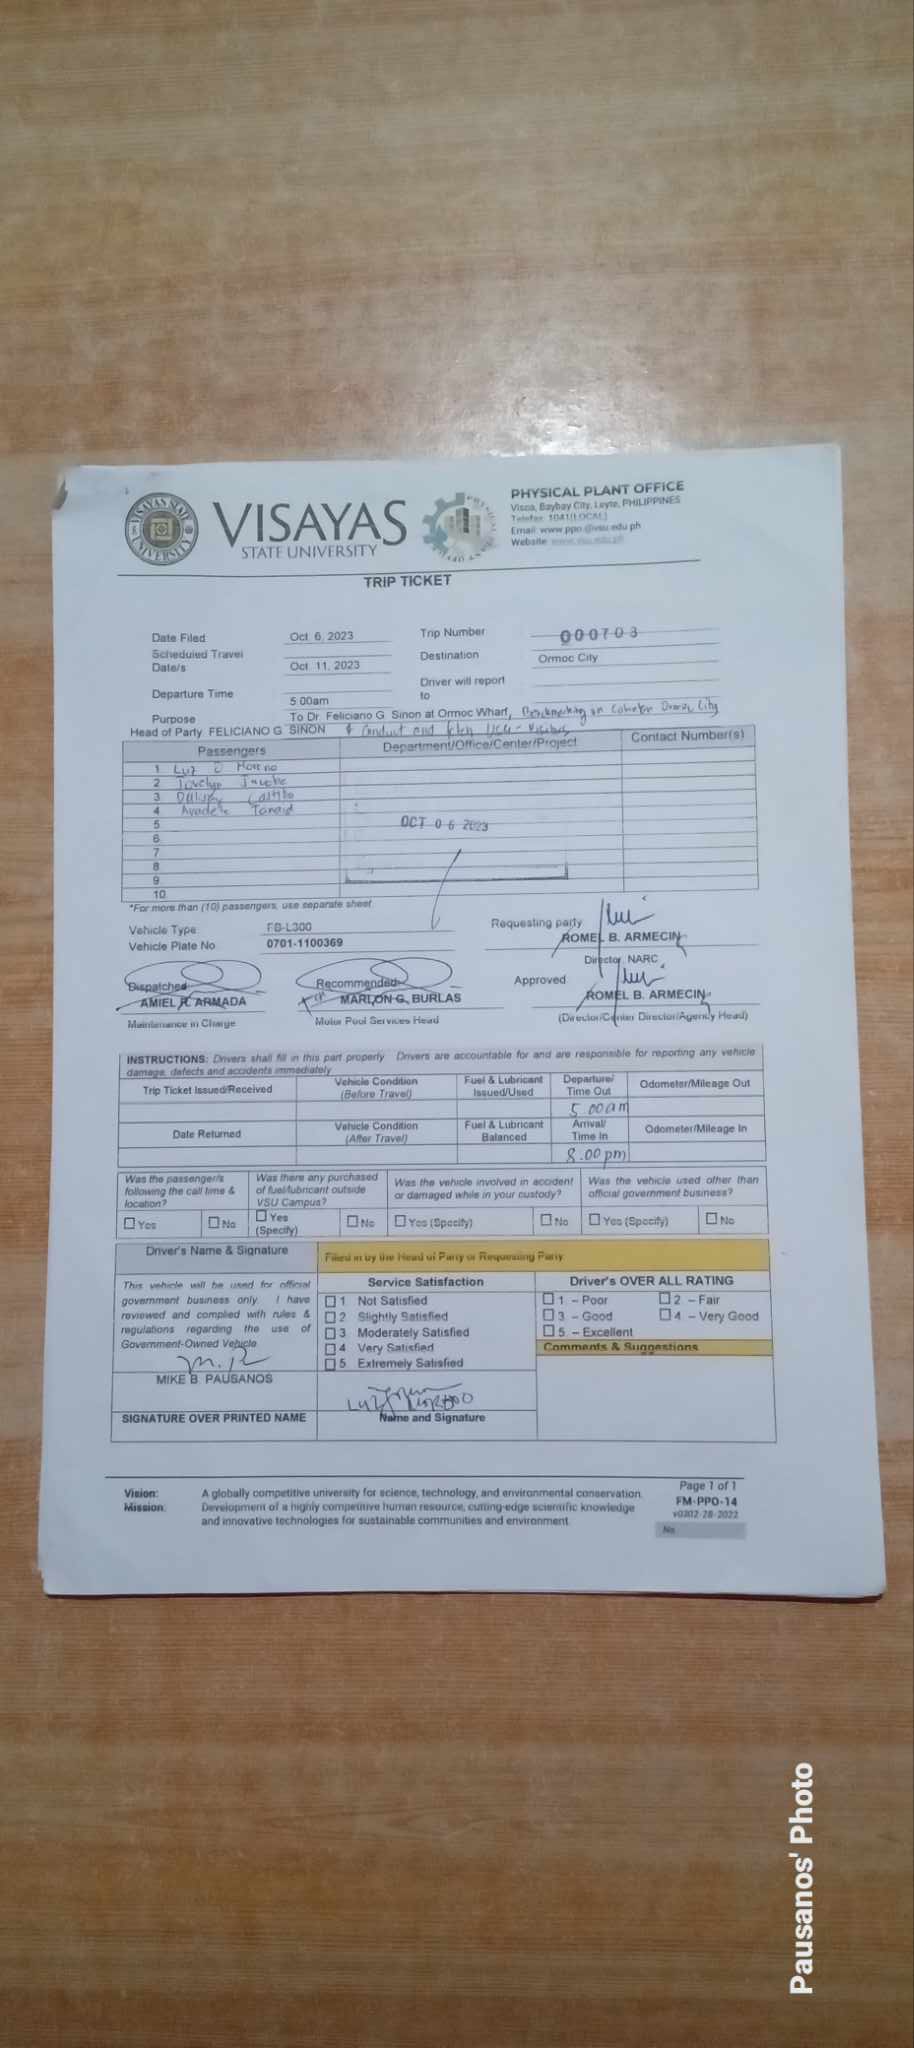 VISAYAS STATE UNIVERSITY
VISAYAS
STATE UNIVERSITY
PHYSICAL PLANT OFFICE
Visca, Baybay City, Leyte, PHILIPPINES
Telefax: 1041(LOCAL)
Email: www.ppo@vsu.edu.ph
Website: www.vsu.edu.ph
TRIP TICKET
Date Filed Oct. 6, 2023 Trip Number 000703
Scheduled Travel Date/s Oct. 11, 2023 Destination Ormoc City
Departure Time 5:00am Driver will report to
Purpose To Dr. Feliciano G. Sinon at Ormoc Wharf, Benchmarking in Ormoc City
Head of Party FELICIANO G. SINON & Conduct and fetch
Passengers Department/Office/Center/Project Contact Number(s)
1 Luz O Moreno
2
3 Castillo
4
5
OCT 06 2023
6
7
8
9
10
*For more than (10) passengers, use separate sheet
Vehicle Type: FB-L300
Vehicle Plate No. 0701-1100369
Requesting party
ROMEL B. ARMECIN
Director, NARC
Dispatched
AMIEL R. ARMADA
Maintenance in Charge
Recommended
MARLON G. BURLAS
Motor Pool Services Head
Approved
ROMEL B. ARMECIN
(Director/Center Director/Agency Head)
INSTRUCTIONS: Drivers shall fill in this part properly. Drivers are accountable for and are responsible for reporting any vehicle
damage, defects and accidents immediately
Trip Ticket Issued/Received Vehicle Condition (Before Travel) Fuel & Lubricant Issued/Used Departure/ Time Out Odometer/Mileage Out
5:00am
Date Returned Vehicle Condition (After Travel) Fuel & Lubricant Balanced Arrival/ Time In Odometer/Mileage In
8:00pm
Was the passenger/s following the call time & location?
Yes No
Was there any purchased of fuel/lubricant outside VSU Campus?
Yes (Specify) No
Was the vehicle involved in accident or damaged while in your custody?
Yes (Specify) No
Was the vehicle used other than official government business?
Yes (Specify) No
Driver's Name & Signature
This vehicle will be used for official
government business only. I have
reviewed and complied with rules &
regulations regarding the use of
Government-Owned Vehicle.
MIKE B. PAUSANOS
SIGNATURE OVER PRINTED NAME
Filled in by the Head of Party or Requesting Party
Service Satisfaction
1 Not Satisfied
2 Slightly Satisfied
3 Moderately Satisfied
4 Very Satisfied
5 Extremely Satisfied
Name and Signature
Driver's OVER ALL RATING
1 – Poor 2 – Fair
3 – Good 4 – Very Good
5 – Excellent
Comments & Suggestions
Vision: A globally competitive university for science, technology, and environmental conservation.
Mission: Development of a highly competitive human resource, cutting-edge scientific knowledge
and innovative technologies for sustainable communities and environment.
Page 1 of 1
FM-PPO-14
v0302-28-2022
No.
Pausanos' Photo